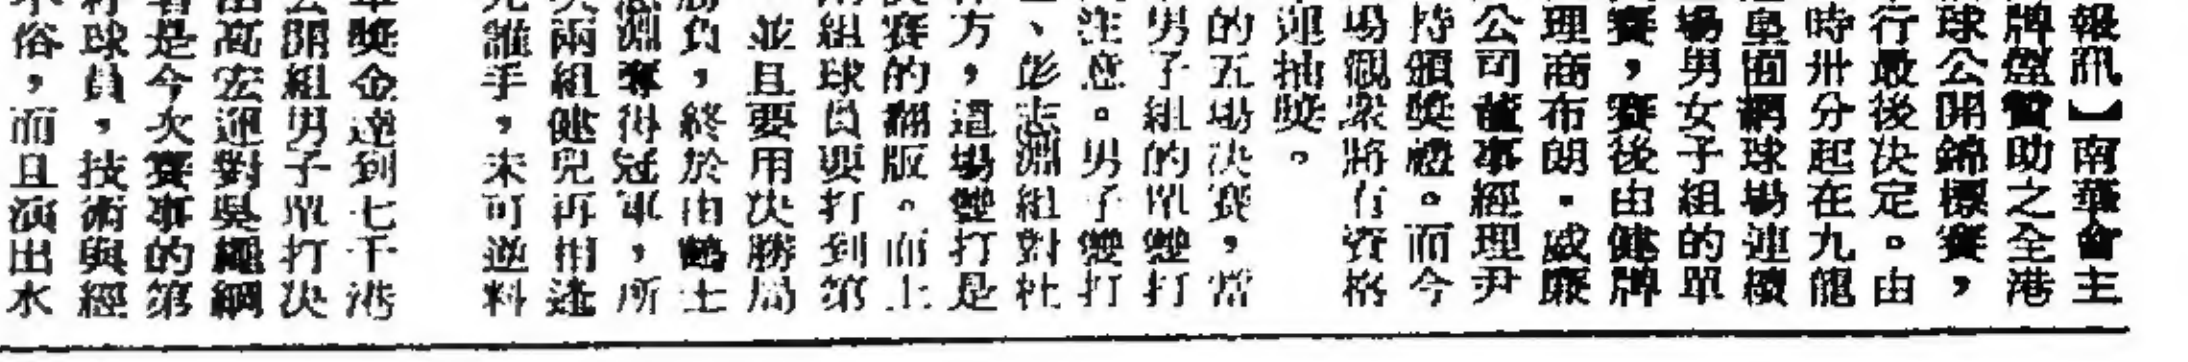 報訊】南華會主
牌煙贊助之全港
球公開錦標賽，
行最後決定。由
時卅分起在九龍
面網球場連續
場男女子組的單
賽，賽後由健牌
理商布朗．威廉
公司董事經理尹
持頒獎禮。而今
場觀眾將有資格
運抽獎。
的五場決賽，當
男子組的單雙打
注意。男子雙打
、彭志淵組對杜
方，這場雙打是
賽的翻版。而上
組球員要打到第
並且要用決勝局
負，終於由鶴士
淵奪得冠軍，所
兩組健兒再相逢
誰手，未可逆料
獎金達到七千港
開組男子單打決
高宏運對吳繩綱
是今次賽事的第
球員，技術與經
俗，而且演出水